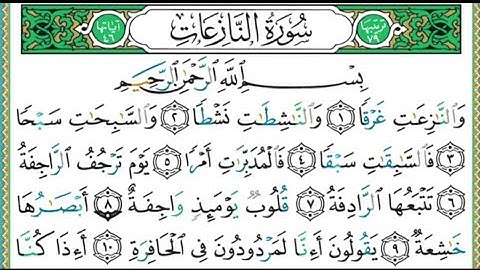 ترتيبها ٧٩ سُورَةُ النَّازِعَاتِ آياتها ٤٦
بِسْمِ اللَّهِ الرَّحْمَٰنِ الرَّحِيمِ
وَالنَّازِعَاتِ غَرْقًا ١ وَالنَّاشِطَاتِ نَشْطًا ٢ وَالسَّابِحَاتِ سَبْحًا
٣ فَالسَّابِقَاتِ سَبْقًا ٤ فَالْمُدَبِّرَاتِ أَمْرًا ٥ يَوْمَ تَرْجُفُ الرَّاجِفَةُ
٦ تَتْبَعُهَا الرَّادِفَةُ ٧ قُلُوبٌ يَوْمَئِذٍ وَاجِفَةٌ ٨ أَبْصَارُهَا
خَاشِعَةٌ ٩ يَقُولُونَ أَءِنَّا لَمَرْدُودُونَ فِي الْحَافِرَةِ ١٠ أَءِذَا كُنَّا